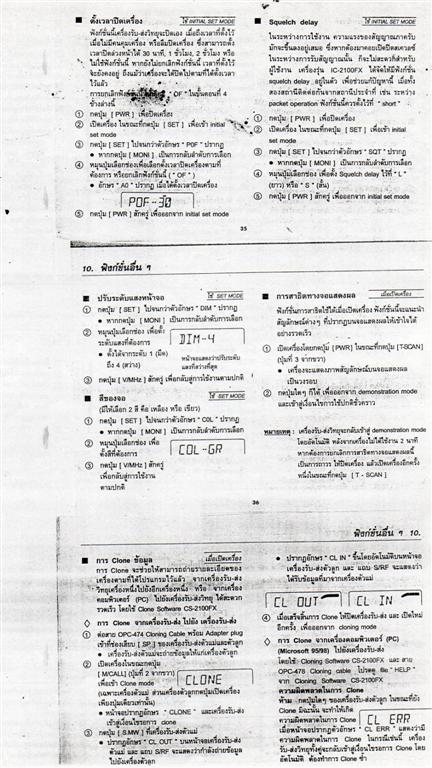 ■ ตั้งเวลาปิดเครื่อง
ใช้ INITIAL SET MODE
ฟังก์ชั่นนี้เครื่องรับ-ส่งวิทยุจะปิดเอง เมื่อถึงเวลาที่ตั้งไว้
เมื่อไม่มีคนคุมเครื่อง หรือลืมปิดเครื่อง ซึ่งสามารถตั้ง
เวลาปิดล่วงหน้าได้ 30 นาที, 1 ชั่วโมง, 2 ชั่วโมง หรือ
ไม่ใช้ฟังก์ชั่นนี้ หากยังไม่ยกเลิกฟังก์ชั่นนี้ เวลาที่ตั้งไว้
จะยังคงอยู่ ถึงแม้ว่าเครื่องจะได้ปิดไปตามที่ได้ตั้งเวลา
ไว้แล้ว
" OF " ในขั้นตอนที่ 4
ข้างล่างนี้
① กดปุ่ม [ PWR ] เพื่อปิดเครื่อง
② เปิดเครื่อง ในขณะที่กดปุ่ม [ SET ] เพื่อเข้า initial
set mode
③ กดปุ่ม [ SET ] ไปจนกว่าตัวอักษร " POF " ปรากฏ
● หากกดปุ่ม [ MONI ] เป็นการกลับลำดับการเลือก
④ หมุนปุ่มเลือกช่องเพื่อเลือกตั้งเวลาปิดเครื่องตามที่
ต้องการ หรือยกเลิกฟังก์ชั่นนี้ ( " OF " )
● อักษร " AO " ปรากฏ เมื่อได้ตั้งเวลาปิดเครื่อง
POF-30
⑤ กดปุ่ม [ PWR ] สักครู่ เพื่อออกจาก initial set mode
■ Squelch delay
ใช้ INITIAL SET MODE
ในระหว่างการใช้งาน ความแรงของสัญญาณภาครับ
มักจะขึ้นลงอยู่เสมอ ซึ่งหากต้องมาคอยเปิดปิดสเควลช์
ในระหว่างการรับสัญญาณนั้น ก็จะไม่สะดวกสำหรับ
ผู้ใช้งาน เครื่องรุ่น IC-2100FX ได้จัดให้มีฟังก์ชั่น
squelch delay อยู่ในตัว เพื่อช่วยแก้ปัญหานี้ เมื่อทั้ง
สองสถานีติดต่อกันจากสถานีประจำที่ เช่น ระหว่าง
packet operation ฟังก์ชั่นนี้ควรตั้งไว้ที่ " short "
① กดปุ่ม [ PWR ] เพื่อปิดเครื่อง
② เปิดเครื่อง ในขณะที่กดปุ่ม [ SET ] เพื่อเข้า initial
set mode
③ กดปุ่ม [ SET ] ไปจนกว่าตัวอักษร " SQT " ปรากฏ
● หากกดปุ่ม [ MONI ] เป็นการกลับลำดับการเลือก
④ หมุนปุ่มเลือกช่อง เพื่อตั้ง Squelch delay ไว้ที่ " L "
(ยาว) หรือ " S " (สั้น)
⑤ กดปุ่ม [ PWR ] สักครู่ เพื่อออกจาก initial set mode
35
10. ฟังก์ชั่นอื่น ๆ
■ ปรับระดับแสงหน้าจอ
ใช้ SET MODE
① กดปุ่ม [ SET ] ไปจนกว่าตัวอักษร " DIM " ปรากฏ
● หากกดปุ่ม [ MONI ] เป็นการกลับลำดับการเลือก
② หมุนปุ่มเลือกช่อง เพื่อตั้ง
ระดับแสงที่ต้องการ
● ตั้งได้จากระดับ 1 (มืด)
ถึง 4 (สว่าง)
DIM-4
หน้าจอแสดงว่าปรับระดับ
แสงที่สว่างที่สุด
③ กดปุ่ม [ V/MHz ] สักครู่ เพื่อกลับสู่การใช้งานตามปกติ
■ สีของจอ
ใช้ SET MODE
(มีให้เลือก 2 สี คือ เหลือง หรือ เขียว)
① กดปุ่ม [ SET ] ไปจนกว่าตัวอักษร " COL " ปรากฏ
● หากกดปุ่ม [ MONI ] เป็นการกลับลำดับการเลือก
② หมุนปุ่มเลือกช่อง เพื่อ
ตั้งสีที่ต้องการ
③ กดปุ่ม [ V/MHz ] สักครู่
เพื่อกลับสู่การใช้งาน
ตามปกติ
COL-GR
■ การสาธิตทางจอแสดงผล
เมื่อเปิดเครื่อง
ฟังก์ชั่นการสาธิตใช้ได้เมื่อเปิดเครื่อง ฟังก์ชั่นนี้จะแนะนำ
สัญลักษณ์ต่างๆ ที่ปรากฏบนจอแสดงผลให้เข้าใจได้
อย่างรวดเร็ว
① เปิดเครื่องโดยกดปุ่ม [ PWR ] ในขณะที่กดปุ่ม [T-SCAN]
(ปุ่มที่ 3 จากขวา)
● เครื่องจะแสดงภาพสัญลักษณ์บนจอแสดงผล
เป็นวงรอบ
② กดปุ่มใดๆ ก็ได้ เพื่อออกจาก demonstration mode
และเข้าสู่เงื่อนไขการใช้ปกติชั่วคราว
หมายเหตุ : เครื่องรับ-ส่งวิทยุจะกลับเข้าสู่ demonstration mode
โดยอัตโนมัติ หลังจากเครื่องไม่ได้ใช้งาน 2 นาที
หากต้องการยกเลิกการสาธิตทางจอแสดงผลนี้
เป็นการถาวร ให้ปิดเครื่อง แล้วเปิดเครื่องอีกครั้ง
หนึ่งในขณะที่กดปุ่ม [ T - SCAN ]
36
ฟังก์ชั่นอื่น ๆ 10.
■ การ Clone ข้อมูล
เมื่อเปิดเครื่อง
การ Clone จะช่วยให้สามารถถ่ายรายละเอียดของ
เครื่องตามที่ได้โปรแกรมไว้แล้ว จากเครื่องรับ-ส่ง
วิทยุเครื่องหนึ่งไปยังอีกเครื่องหนึ่ง หรือ จากเครื่อง
คอมพิวเตอร์ (PC) ไปยังเครื่องรับ-ส่งวิทยุ ได้สะดวก
รวดเร็ว โดยใช้ Clone Software CS-2100FX
◇ การ Clone จากเครื่องรับ-ส่ง ไปยัง เครื่องรับ-ส่ง
① ต่อสาย OPC-474 Cloning Cable พร้อม Adapter plug
เข้าที่ช่องเสียบ [ SP ] ของเครื่องรับ-ส่งตัวแม่และตัวลูก
● เครื่องรับ-ส่งตัวแม่จะถ่ายข้อมูลให้แก่เครื่องตัวลูก
② เปิดเครื่องในขณะกดปุ่ม
[ M/CALL] (ปุ่มที่ 2 จากขวา)
เพื่อเข้า Clone mode
(เฉพาะเครื่องตัวแม่ ส่วนเครื่องตัวลูกกดปุ่มเปิดเครื่อง
เพียงปุ่มเดียวเท่านั้น)
CLONE
● หน้าจอปรากฏ " CLONE " และเครื่องรับ-ส่ง
เข้าสู่เงื่อนไขการ clone
③ กดปุ่ม [ S.MW ] ที่เครื่องรับ-ส่งตัวแม่
● ปรากฏอักษร " CL OUT " บนหน้าจอเครื่องรับ-ส่ง
ตัวแม่ และ แถบ S/RF จะแสดงว่ากำลังถ่ายข้อมูล
ไปยังเครื่องตัวลูก
● ปรากฏอักษร " CL IN " ขึ้นโดยอัตโนมัติบนหน้าจอ
เครื่องรับ-ส่งตัวลูก และ แถบ S/RF จะแสดงว่า
ได้รับข้อมูลที่มาจากเครื่องตัวแม่
CL OUT
CL IN
④ เมื่อเสร็จสิ้นการ Clone ให้ปิดเครื่องรับ-ส่ง และ เปิดใหม่
อีกครั้ง เพื่อออกจาก cloning mode
◇ การ Clone จากเครื่องคอมพิวเตอร์ (PC)
(Microsoft 95/98) ไปยังเครื่องรับ-ส่ง
โดยใช้ Cloning Software CS-2100FX และ สาย
OPC-478 Cloning cable โปรดดู file " HELP "
จาก Cloning Software CS-2100FX
ความผิดพลาดในการ Clone
ห้าม กดปุ่มใดๆ ของเครื่องรับ-ส่งตัวลูก ในขณะที่ยัง
Clone มิฉะนั้น จะทำให้เกิด
ความผิดพลาดในการ Clone
CL ERR
เมื่อหน้าจอปรากฏตัวอักษร " CL ERR " แสดงว่ามี
ความผิดพลาดในการ Clone ในกรณีเช่นนี้ เครื่อง
รับ-ส่งวิทยุทั้งคู่จะกลับเข้าสู่เงื่อนไขการ Clone โดย
อัตโนมัติ ต้องทำการ Clone ซ้ำ